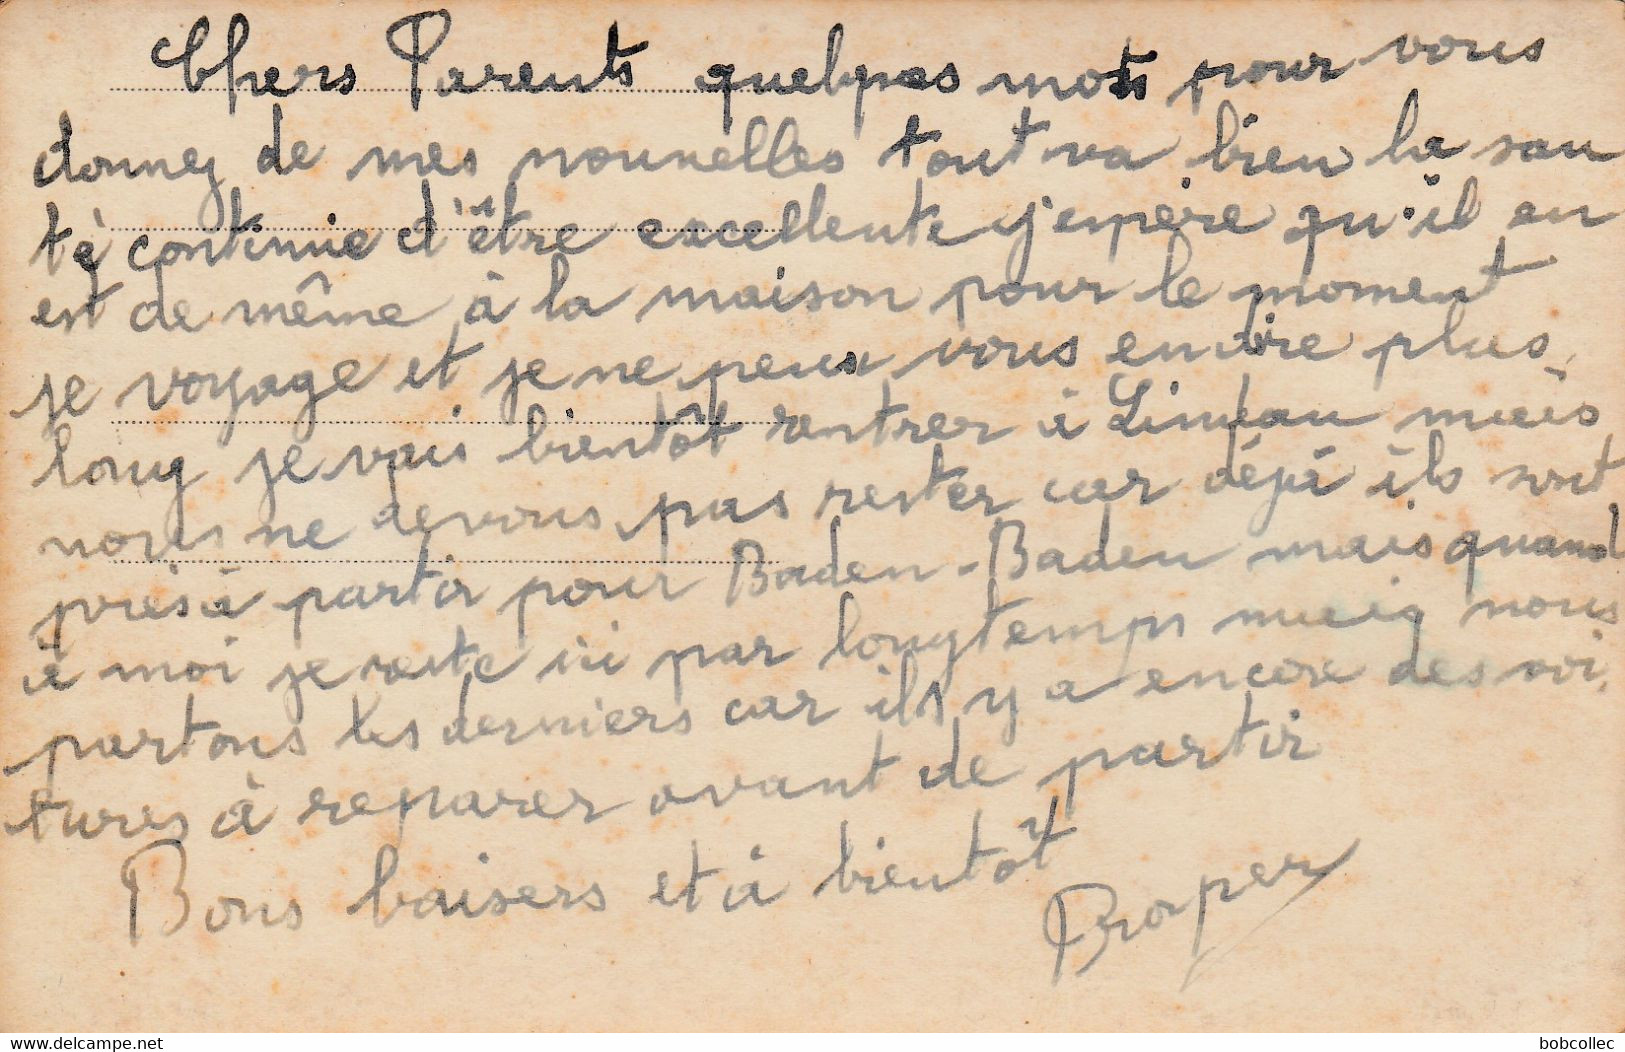 Chers Parents quelques mots pour vous
donner de mes nouvelles tout va bien la san
té continue d'être excellente j'espère qu'il en
est de même à la maison pour le moment
je voyage et je ne peux vous en dire plus
long je vais bientôt rentrer à Lindau mais
nous ne devons pas rester car déjà ils sont
près à partir pour Baden-Baden mais quand
à moi je reste ici par longtemps mais nous
partons les derniers car ils y a encore des voi.
tures à reparer avant de partir
Bons baisers et à bientôt
delcampe.net
bobcollec